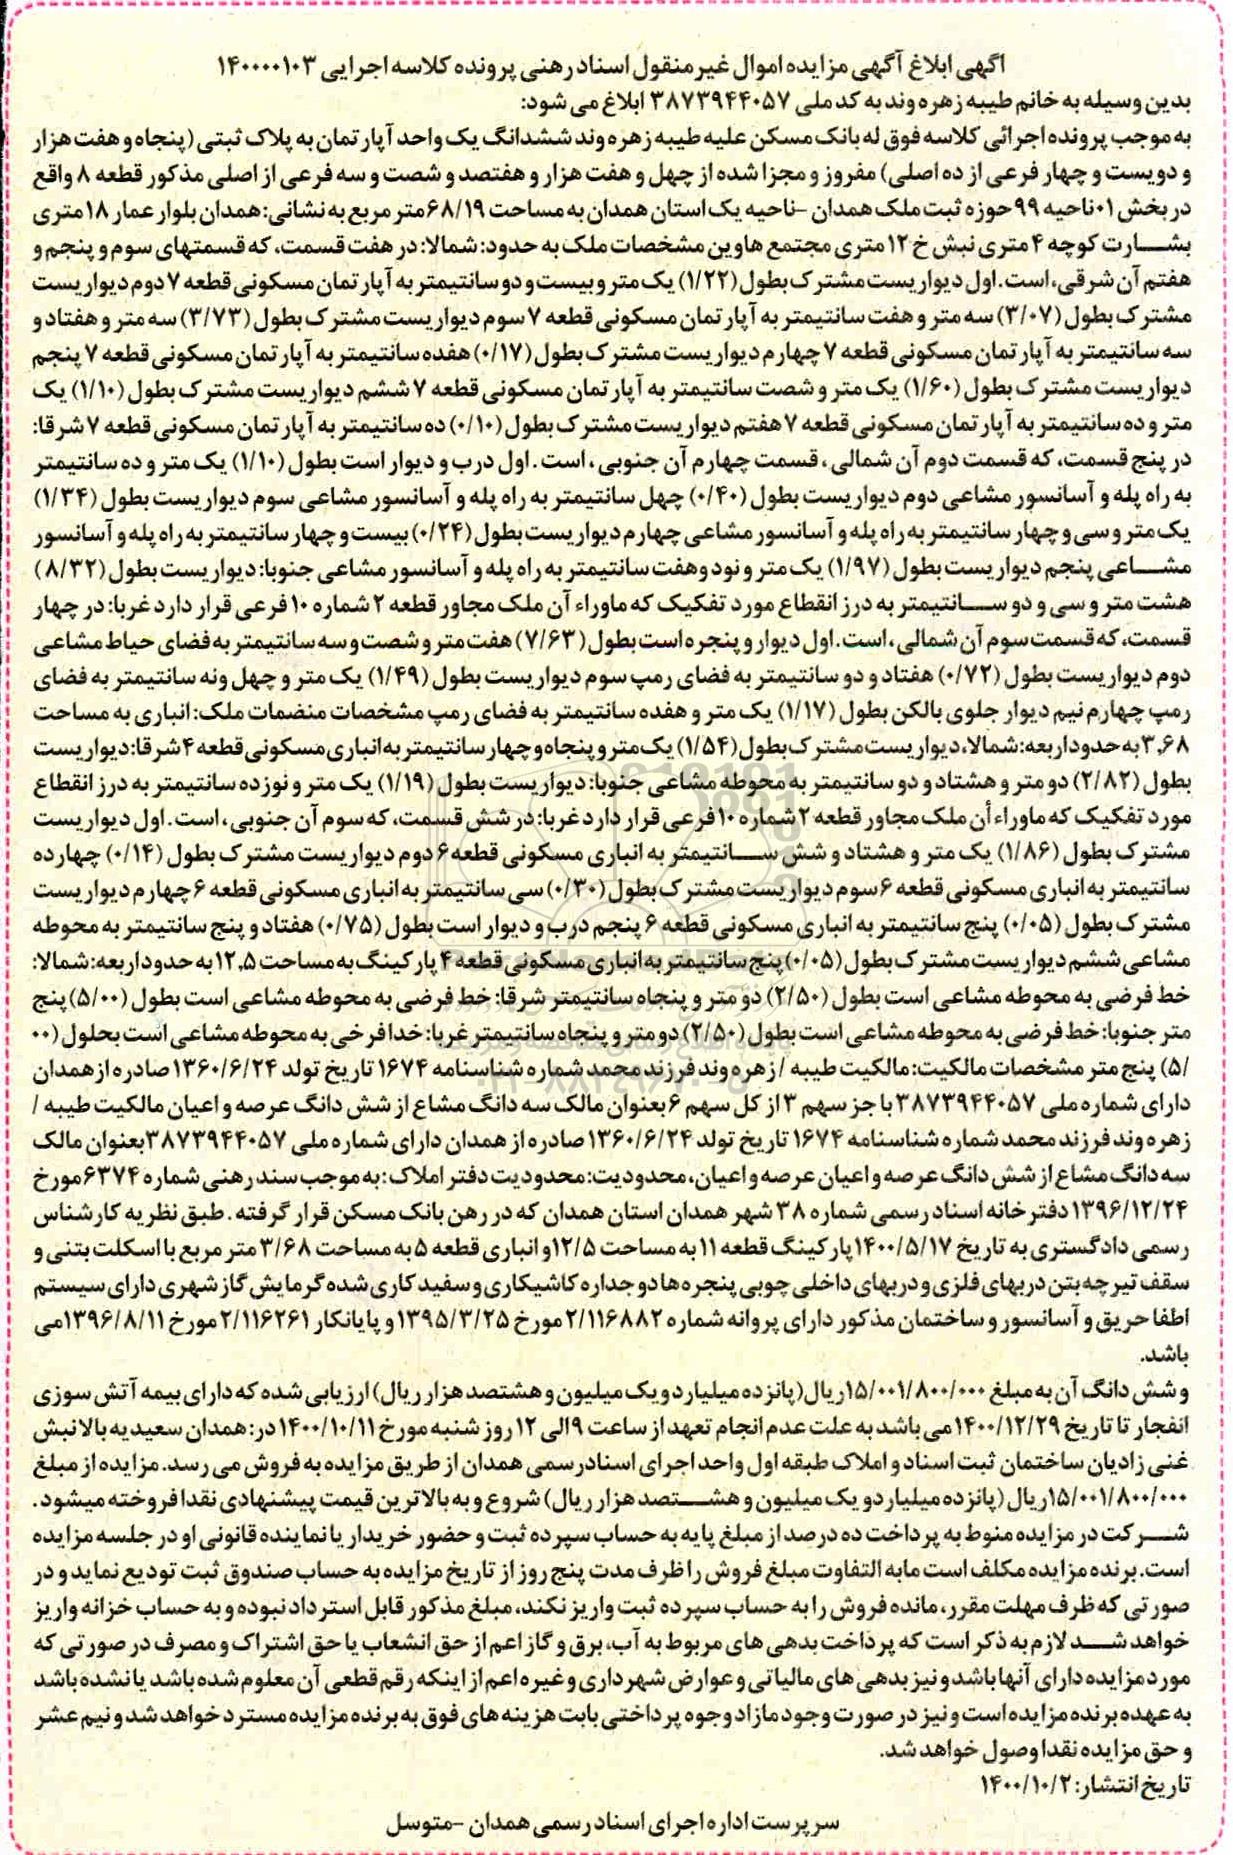 اگهی ابلاغ آگهی مزایده اموال غیر منقول اسناد رهنی پرونده کلاسه اجرایی ۱۴۰۰۰۰۱۰۳
بدین وسیله به خانم طیبه زهره وند به کد ملی ۳۸۷۳۹۴۴۰۵۷ ابلاغ می شود:
به موجب پرونده اجرائی کلاسه فوق له بانک مسکن علیه طیبه زهره وند ششدانگ یک واحد آپارتمان به پلاک ثبتی (پنجاه و هفت هزار
و دویست و چهار فرعی از ده اصلی) مفروز و مجزا شده از چهل و هفت هزار و هفتصد و شصت و سه فرعی از اصلی مذکور قطعه ۸ واقع
در بخش ۰۱ ناحیه ۹۹ حوزه ثبت ملک همدان -ناحیه یک استان همدان به مساحت ۶۸/۱۹ متر مربع به نشانی: همدان بلوار عمار ۱۸ متری
بشارت کوچه ۴ متری نبش خ ۱۲ متری مجتمع هاوین مشخصات ملک به حدود: شمالا: در هفت قسمت، که قسمتهای سوم و پنجم و
هفتم آن شرقی، است. اول دیواریست مشترک بطول (۱/۲۲) یک متر و بیست و دو سانتیمتر به آپارتمان مسکونی قطعه ۷ دوم دیواریست
مشترک بطول (۳/۰۷) سه متر و هفت سانتیمتر به آپارتمان مسکونی قطعه ۷ سوم دیواریست مشترک بطول (۳/۷۳) سه متر و هفتاد و
سه سانتیمتر به آپارتمان مسکونی قطعه ۷ چهارم دیواریست مشترک بطول (۰/۱۷) هفده سانتیمتر به آپارتمان مسکونی قطعه ۷ پنجم
دیواریست مشترک بطول (۱/۶۰) یک متر و شصت سانتیمتر به آپارتمان مسکونی قطعه ۷ ششم دیواریست مشترک بطول (۱/۱۰) یک
متر و ده سانتیمتر به آپارتمان مسکونی قطعه ۷ هفتم دیواریست مشترک بطول (۰/۱۰) ده سانتیمتر به آپارتمان مسکونی قطعه ۷ شرقا:
در پنج قسمت، که قسمت دوم آن شمالی، قسمت چهارم آن جنوبی، است. اول درب و دیوار است بطول (۱/۱۰) یک متر و ده سانتیمتر
به راه پله و آسانسور مشاعی دوم دیواریست بطول (۰/۴۰) چهل سانتیمتر به راه پله و آسانسور مشاعی سوم دیواریست بطول (۱/۳۴)
یک متر و سی و چهار سانتیمتر به راه پله و آسانسور مشاعی چهارم دیواریست بطول (۰/۲۴) بیست و چهار سانتیمتر به راه پله و آسانسور
مشاعی پنجم دیواریست بطول (۱/۹۷) یک متر و نود وهفت سانتیمتر به راه پله و آسانسور مشاعی جنوبا: دیواریست بطول (۸/۳۲)
هشت متر و سی و دو سانتیمتر به درز انقطاع مورد تفکیک که ماوراء آن ملک مجاور قطعه ۲ شماره ۱۰ فرعی قرار دارد غربا: در چهار
قسمت، که قسمت سوم آن شمالی، است. اول دیوار و پنجره است بطول (۷/۶۳) هفت متر و شصت و سه سانتیمتر به فضای حیاط مشاعی
دوم دیواریست بطول (۰/۷۲) هفتاد و دو سانتیمتر به فضای رمپ سوم دیواریست بطول (۱/۴۹) یک متر و چهل ونه سانتیمتر به فضای
رمپ چهارم نیم دیوار جلوی بالکن بطول (۱/۱۷) یک متر و هفده سانتیمتر به فضای رمپ مشخصات منضمات ملک: انباری به مساحت
۳,۶۸ به حدود اربعه: شمالا، دیواریست مشترک بطول (۱/۵۴) یک متر و پنجاه و چهار سانتیمتر به انباری مسکونی قطعه ۴ شرقا: دیواریست
بطول (۲/۸۲) دو متر و هشتاد و دو سانتیمتر به محوطه مشاعی جنوبا: دیواریست بطول (۱/۱۹) یک متر و نوزده سانتیمتر به درز انقطاع
مورد تفکیک که ماوراء آن ملک مجاور قطعه ۲ شماره ۱۰ فرعی قرار دارد غربا: در شش قسمت، که سوم آن جنوبی، است. اول دیواریست
مشترک بطول (۱/۸۶) یک متر و هشتاد و شش سانتیمتر به انباری مسکونی قطعه ۶ دوم دیواریست مشترک بطول (۰/۱۴) چهارده
سانتیمتر به انباری مسکونی قطعه ۶ سوم دیواریست مشترک بطول (۰/۳۰) سی سانتیمتر به انباری مسکونی قطعه ۶ چهارم دیواریست
مشترک بطول (۰/۰۵) پنج سانتیمتر به انباری مسکونی قطعه ۶ پنجم درب و دیوار است بطول (۰/۷۵) هفتاد و پنج سانتیمتر به محوطه
مشاعی ششم دیواریست مشترک بطول (۰/۰۵) پنج سانتیمتر به انباری مسکونی قطعه ۴ پارکینگ به مساحت ۱۲,۵ به حدود اربعه: شمالا:
خط فرضی به محوطه مشاعی است بطول (۲/۵۰) دو متر و پنجاه سانتیمتر شرقا: خط فرضی به محوطه مشاعی است بطول (۵/۰۰) پنج
متر جنوبا: خط فرضی به محوطه مشاعی است بطول (۲/۵۰) دو متر و پنجاه سانتیمتر غربا: خدا فرخی به محوطه مشاعی است بحلول (۰۰
/۵) پنج متر مشخصات مالکیت: مالکیت طیبه / زهره وند فرزند محمد شماره شناسنامه ۱۶۷۴ تاریخ تولد ۱۳۶۰/۶/۲۴ صادره از همدان
دارای شماره ملی ۳۸۷۳۹۴۴۰۵۷ با جز سهم ۳ از کل سهم ۶ بعنوان مالک سه دانگ مشاع از شش دانگ عرصه و اعیان مالکیت طیبه /
زهره وند فرزند محمد شماره شناسنامه ۱۶۷۴ تاریخ تولد ۱۳۶۰/۶/۲۴ صادره از همدان دارای شماره ملی ۳۸۷۳۹۴۴۰۵۷ بعنوان مالک
سه دانگ مشاع از شش دانگ عرصه و اعیان عرصه و اعیان، محدودیت: محدودیت دفتر املاک: به موجب سند رهنی شماره ۶۳۷۴ مورخ
۱۳۹۶/۱۲/۲۴ دفترخانه اسناد رسمی شماره ۳۸ شهر همدان استان همدان که در رهن بانک مسکن قرار گرفته. طبق نظریه کارشناس
رسمی دادگستری به تاریخ ۱۴۰۰/۵/۱۷ پارکینگ قطعه ۱۱ به مساحت ۱۲/۵ و انباری قطعه ۵ به مساحت ۳/۶۸ متر مربع با اسکلت بتنی و
سقف تیرچه بتن دربهای فلزی و دربهای داخلی چوبی پنجره ها دو جداره کاشیکاری و سفید کاری شده گرمایش گاز شهری دارای سیستم
اطفا حریق و آسانسور و ساختمان مذکور دارای پروانه شماره ۲/۱۱۶۸۸۲ مورخ ۱۳۹۵/۳/۲۵ و پایانکار ۲/۱۱۶۲۶۱ مورخ ۱۳۹۶/۸/۱۱ می
باشد.
و شش دانگ آن به مبلغ ۱۵/۰۰۱/۸۰۰/۰۰۰ ریال (پانزده میلیارد و یک میلیون و هشتصد هزار ریال) ارزیابی شده که دارای بیمه آتش سوزی
انفجار تا تاریخ ۱۴۰۰/۱۲/۲۹ می باشد به علت عدم انجام تعهد از ساعت ۹ الی ۱۲ روز شنبه مورخ ۱۴۰۰/۱۰/۱۱ در: همدان سعیدیه بالا نبش
غنی زادیان ساختمان ثبت اسناد و املاک طبقه اول واحد اجرای اسناد رسمی همدان از طریق مزایده به فروش می رسد. مزایده از مبلغ
۱۵/۰۰۱/۸۰۰/۰۰۰ ریال (پانزده میلیارد و یک میلیون و هشتصد هزار ریال) شروع و به بالاترین قیمت پیشنهادی نقدا فروخته میشود.
شرکت در مزایده منوط به پرداخت ده درصد از مبلغ پایه به حساب سپرده ثبت و حضور خریدار یا نماینده قانونی او در جلسه مزایده
است. برنده مزایده مکلف است مابه التفاوت مبلغ فروش را ظرف مدت پنج روز از تاریخ مزایده به حساب صندوق ثبت تودیع نماید و در
صورتی که ظرف مهلت مقرر، مانده فروش را به حساب سپرده ثبت واریز نکند، مبلغ مذکور قابل استرداد نبوده و به حساب خزانه واریز
خواهد شد لازم به ذکر است که پرداخت بدهی های مربوط به آب، برق و گاز اعم از حق انشعاب یا حق اشتراک و مصرف در صورتی که
مورد مزایده دارای آنها باشد و نیز بدهی های مالیاتی و عوارض شهرداری و غیره اعم از اینکه رقم قطعی آن معلوم شده باشد یا نشده باشد
به عهده برنده مزایده است و نیز در صورت وجود مازاد وجوه پرداختی بابت هزینه های فوق به برنده مزایده مسترد خواهد شد و نیم عشر
و حق مزایده نقدا وصول خواهد شد.
تاریخ انتشار: ۱۴۰۰/۱۰/۲
سرپرست اداره اجرای اسناد رسمی همدان -متوسل